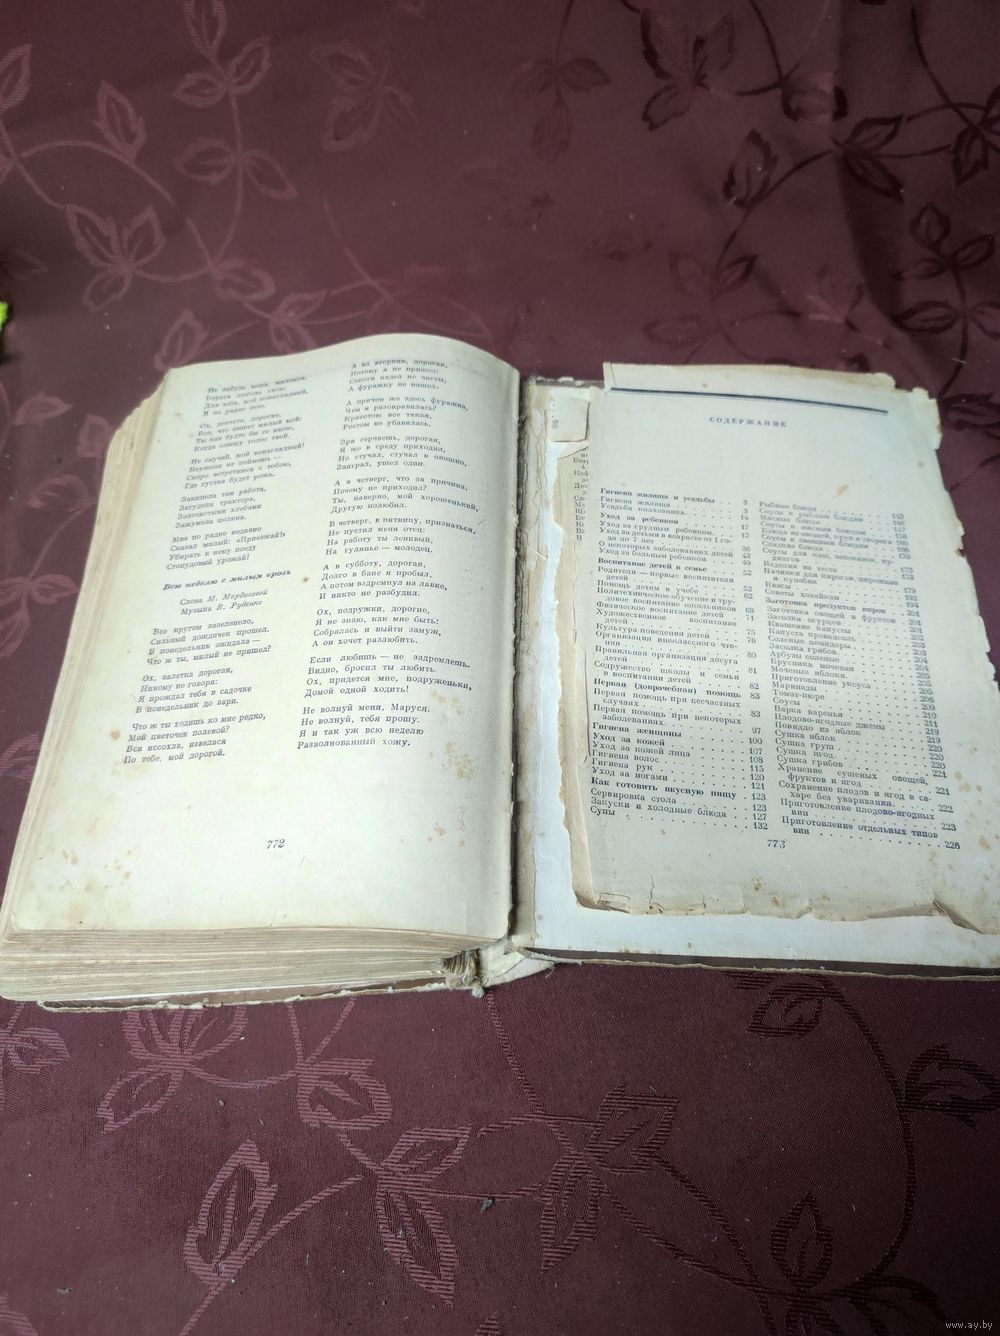 Не забудь меня, миленок,
Береги любовь свою,
Для тебя, мой ненаглядный,
Я по радио пою.
Ох, девчата, дорогие,
Вот, что пишет милый мой:
Ты как будто бы со мною,
Когда слышу голос твой.
Не скучай, мой ненаглядный!
Неужели не поймешь —
Скоро встретимся с тобою,
Где густая будет рожь.
Закипела там работа,
Загудели трактора,
Золотистыми хлебами
Зашумела целина.
Мне по радио недавно
Сказал милый: «Приезжай!»
Убирать к нему поеду
Стопудовый урожай!
Всю неделю с милым врозь
Слова М. Мордасовой
Музыка В. Руденко
Все кругом зазеленело,
Сильный дождичек прошел.
В понедельник ожидала —
Что ж ты, милый не пришел?
Ох, залетка дорогая,
Никому не говори:
Я прождал тебя в садочке
В понедельник до зари.
Что ж ты ходишь ко мне редко,
Мой цветочек полевой?
Вся иссохла, извелася
По тебе, мой дорогой.
А во вторник, дорогая,
Потому я не пришел:
Сапоги надел не чисты,
А фуражку не нашел.
А причем же здесь фуражка,
Чем я разонравилась?
Красотою все такая,
Ростом не убавилась.
Зря серчаешь, дорогая,
Я же в среду приходил,
Но стучал, стучал в окошко,
Заиграл, ушел один.
А в четверг, что за причина,
Почему не приходил?
Ты, наверно, мой хорошенький,
Другую полюбил.
В четверг, в пятницу, признаться,
Не пустил меня отец:
На работу ты ленивый,
На гулянье — молодец.
А в субботу, дорогая,
Долго в бане я пробыл,
А потом вздремнул на лавке,
И никто не разбудил.
Ох, подружки, дорогие,
Я не знаю, как мне быть:
Собралась я выйти замуж,
А он хочет разлюбить.
Если любишь — не задремлешь.
Видно, бросил ты любить.
Ох, придется мне, подруженьки,
Домой одной ходить!
Не волнуй меня, Маруся.
Не волнуй, тебя прошу.
Я и так уж всю неделю
Разволнованный хожу.
772
СОДЕРЖАНИЕ
Гигиена жилища и усадьбы . . 3
Гигиена жилища . . . 3
Усадьба колхозника . . . 14
Уход за ребенком . . . 17
Уход за грудным ребенком . . 17
Уход за детьми в возрасте от 1 го-
да до 7 лет . . .
О некоторых заболеваниях детей
Уход за больным ребенком . .
Воспитание детей в семье . .
Родители — первые воспитатели
детей . . . 52
Помощь детям в учебе . . 62
Политехническое обучение и тру-
довое воспитание школьников
Физическое воспитание детей
Художественное воспитание
детей . . .
Культура поведения детей . . 75
Организация внеклассного чте-
ния . . .
Правильная организация досуга
детей . . .
Содружество школы и семьи
в воспитании детей . . 82
Первая (доврачебная) помощь 83
Первая помощь при несчастных
случаях . . . 83
Первая помощь при некоторых
заболеваниях . . .
Гигиена женщины . . . 97
Уход за кожей . . . 100
Уход за кожей лица . . . 107
Гигиена волос . . . 108
Гигиена рук . . . 115
Уход за ногами . . . 120
Как готовить вкусную пищу . 121
Сервировка стола . . . 123
Закуски и холодные блюда . 127
Супы . . . 132
Рыбные блюда . . . 143
Соусы к рыбным блюдам . .
Мясные блюда . . .
Соусы к мясным блюдам . .
Блюда из овощей, круп и творога
Соусы к овощным блюдам . .
Сладкие блюда . . .
Соусы для каш, запеканок, пу-
дингов . . .
Изделия из теста . . . 173
Начинки для пирогов, пирожков
и кулебяк . . .
Квасы . . .
Советы хозяйкам . . . 192
Заготовка продуктов впрок . .
Заготовка овощей и фруктов 201
Засолка огурцов . . . 201
Квашение капусты . . .
Капуста провансаль . . .
Соленые помидоры . . . 203
Засолка грибов . . .
Арбузы соленые . . . 204
Брусника моченая . . . 204
Моченые яблоки . . .
Приготовление уксуса . . 205
Маринады . . . 205
Томат-пюре . . .
Соусы . . . 209
Варка варенья . . . 210
Плодово-ягодные джемы . . 211
Повидло из яблок . . .
Сушка яблок . . .
Сушка груш . . . 220
Сушка ягод . . . 220
Сушка грибов . . . 220
Хранение сушеных овощей,
фруктов и ягод . . . 221
Сохранение плодов и ягод в са-
харе без уваривания . . 222
Приготовление плодово-ягодных
вин . . . 223
Приготовление отдельных типов
вин . . . 226
773
www.ay.by